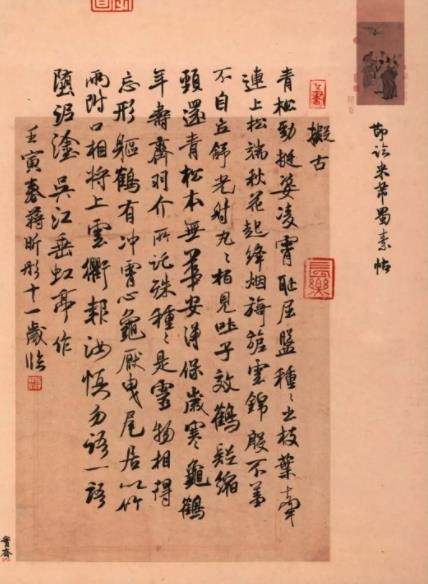 節臨米芾蜀素帖
擬古
長樂
青松勁挺姿凌霄恥屈盤種〻出枝葉牽
連上松端秋花起絳烟旖旎雲錦殷不羞
不自立舒光射丸〻柏見吐子效鶴疑縮
頸還青松本無華安得保歲寒龜鶴
年壽齊羽介所託殊種〻是靈物相得
忘形軀鶴有沖霄心龜厭曳尾居以竹
兩附口相將上雲衢報汝慎勿語一語
墮泥塗吳江垂虹亭作
壬寅春蔣昕彤十一歲臨